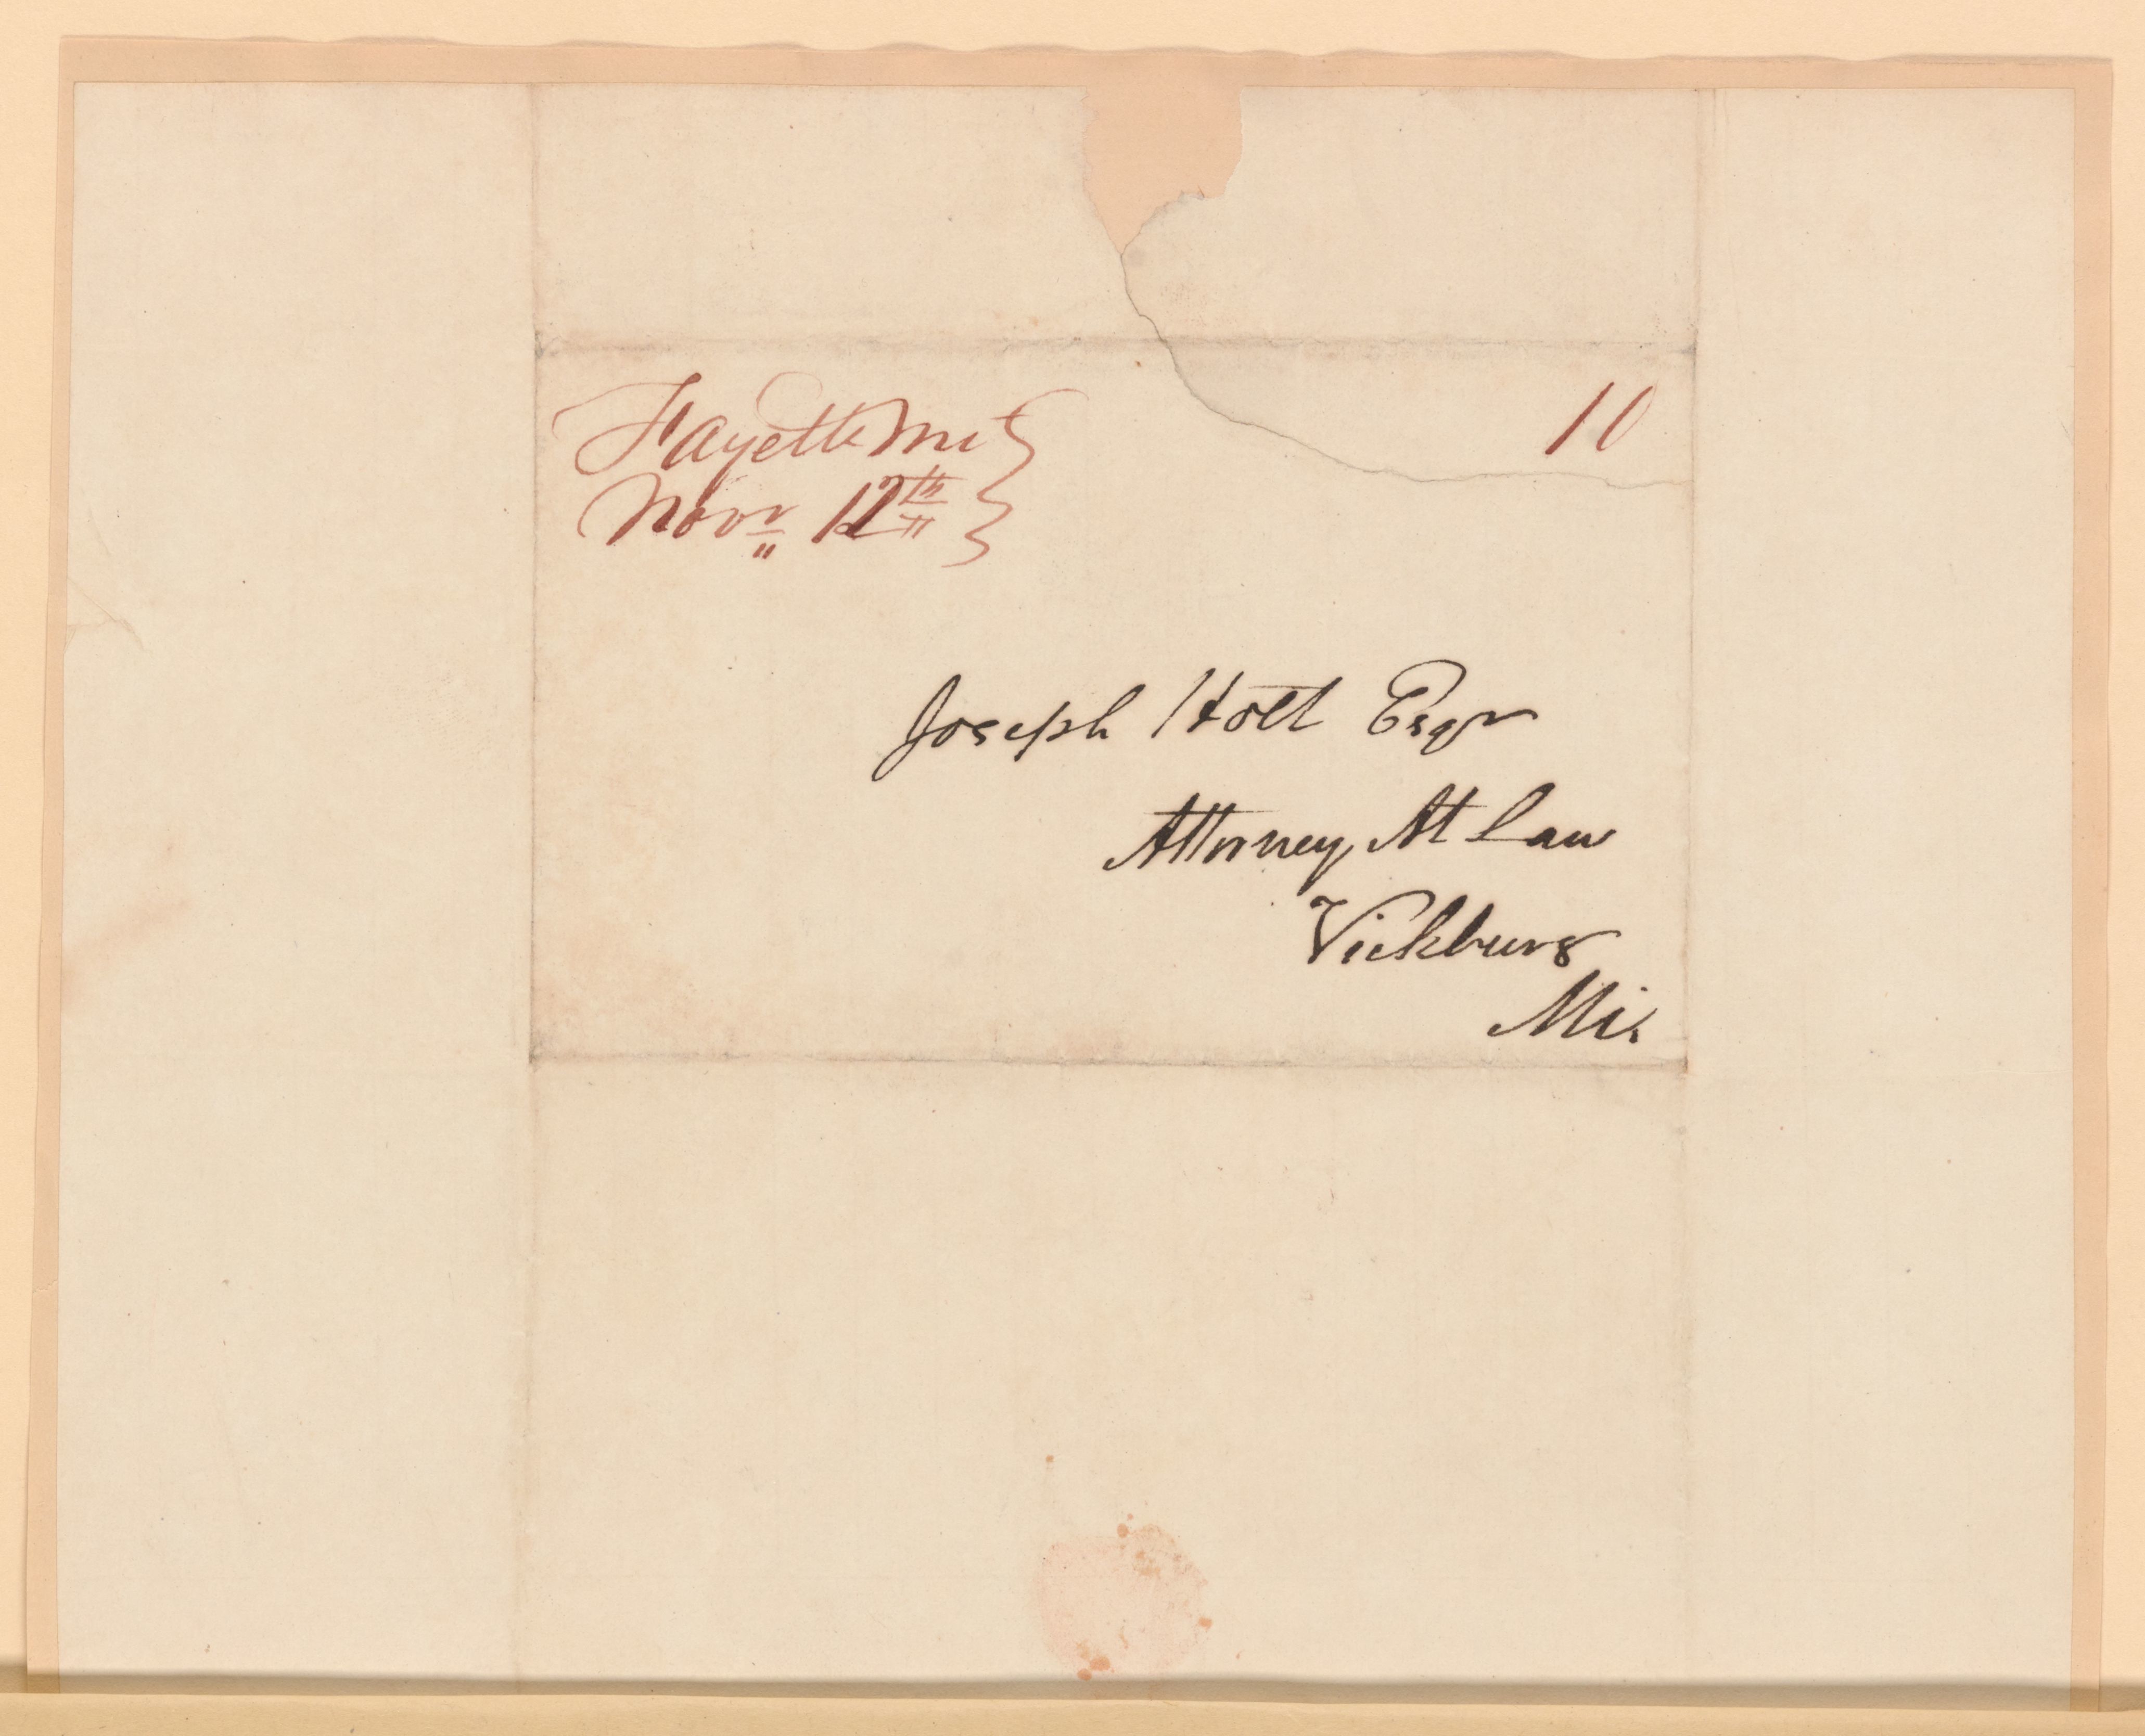 Fayette Mi
Novr 12th
10
Joseph Holt Esqr
Attorney At Law
Vickburg
Mi.